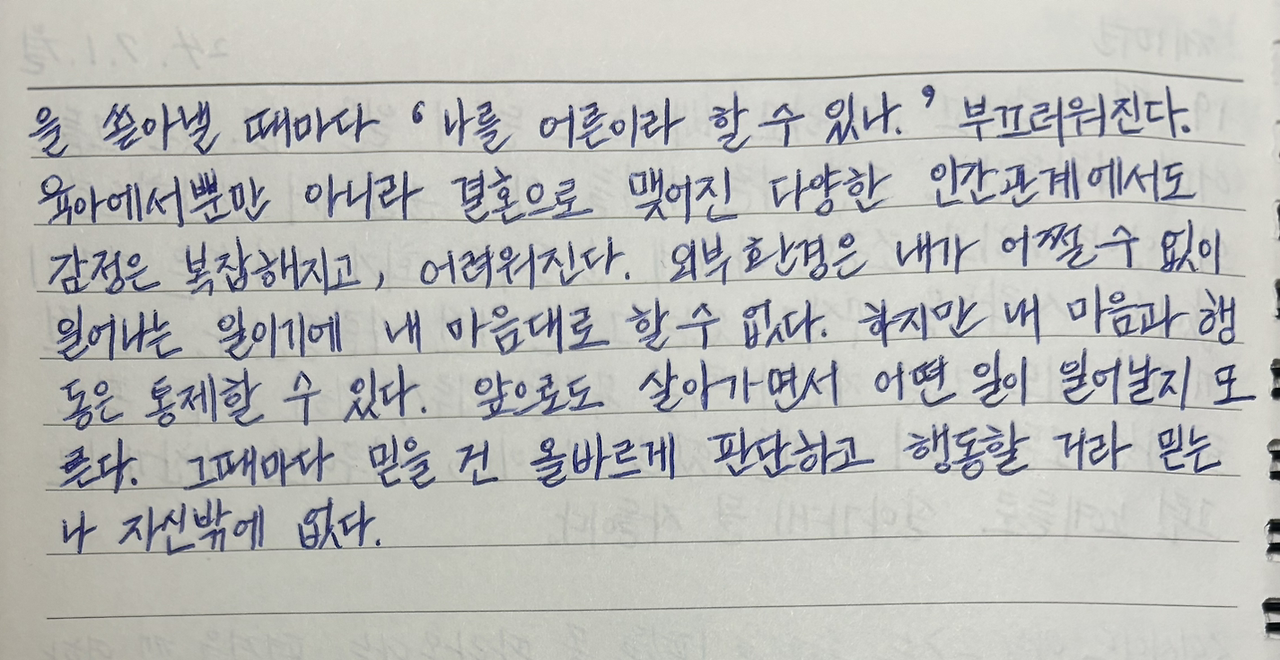 을 쏟아낼 때마다 '나를 어른이라 할 수 있나.' 부끄러워진다.
육아에서뿐만 아니라 결혼으로 맺어진 다양한 인간관계에서도
감정은 복잡해지고, 어려워진다. 외부환경은 내가 어쩔 수 없이
일어나는 일이기에 내 마음대로 할 수 없다. 하지만 내 마음과 행
동은 통제할 수 있다. 앞으로도 살아가면서 어떤 일이 일어날지 모
른다. 그때마다 믿을 건 올바르게 판단하고 행동할 거라 믿는
나 자신밖에 없다.